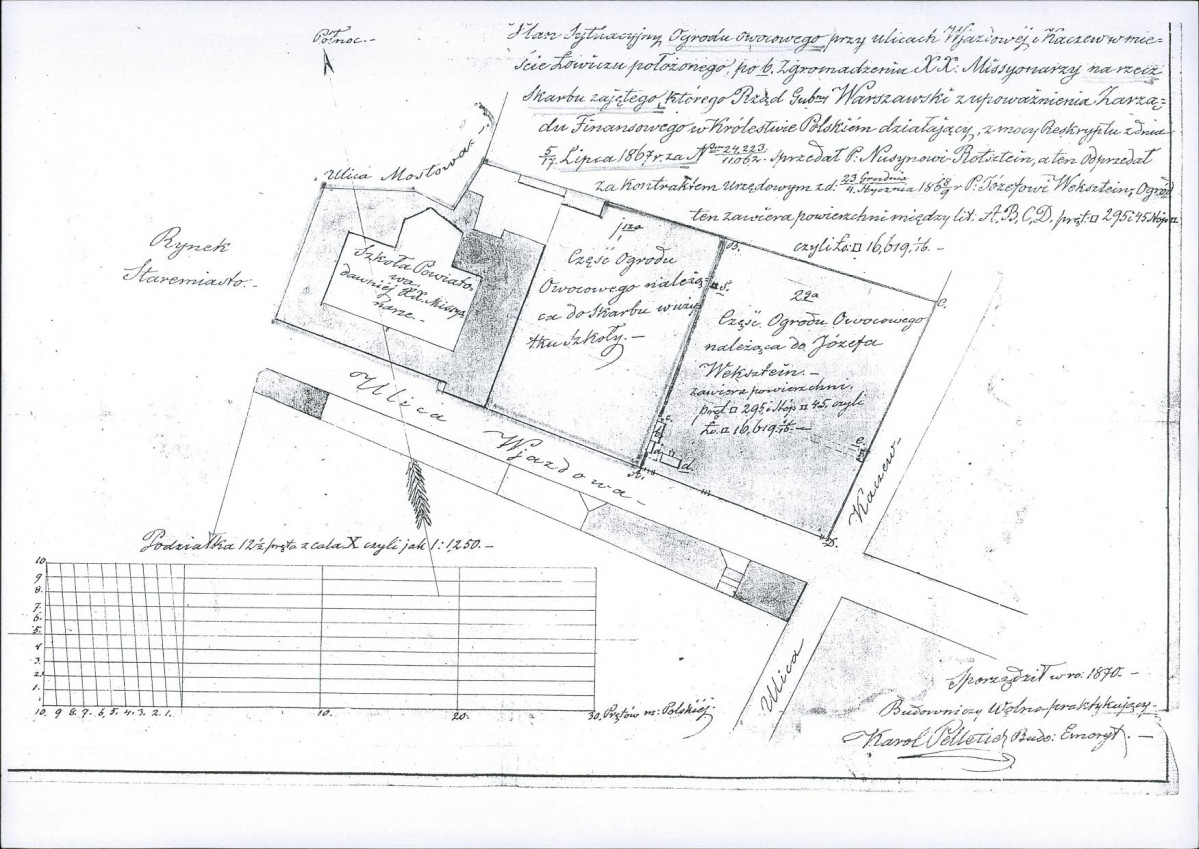 Północ.-
Plan Sytuacyjny Ogrodu owocowego, przy ulicach Wjazdowéj i Kaczew w mie-
ście Łowiczu położonego, po b. Zgromadzeniu XX: Missyonarzy na rzecz
Skarbu zajętego, którego Rząd Gubny Warszawski z upoważnienia Zarzą-
du Finansowego w Królestwie Polskiém działający, z mocy Reskryptu z dnia
5/17 Lipca 1867 r. za Nrem 24,223/11,062. sprzedał P. Nusynowi Rotsztein, a ten odprzedał
za kontraktem urzędowym z d: 23 Grudnia/4 Stycznia 1868/9 r P. Józefowi Weksztein, Ogród
ten zawiera powierzchni między lit: A, B, C, D, pręt. □ 295 i 45 stóp □
czyli Ło: □ 16,619,
Ulica Mostowa-
Rynek
Staremiasto.-
Szkoła Powiato-
wa
dawniej XX. Missyo
narze.-
1sza
Część Ogrodu
Owocowego należą-
ca do Skarbu w uży-
tku Szkoły.-
B.
S.
C.
22a
Część Ogrodu Owocowego
należąca do Józefa
Weksztein.-
zawiera powierzchni,
pręt □ 295 i stóp □ 45, czyli
Ło. □ 16,619,
c.
b
a
d.
e.
A.
D.
Ulica Wjazdowa-
Kaczew-
Ulica
Podziałka 12½ pręta z cala X czyli jak 1:1250.-
10.
9
8.
7.
6.
5.
4
3.
2.
1.
10. 9 8. 7. 6. 5. 4. 3. 2. 1. 10. 20. 30. Prętów m: Polskiéj
Sporządził w ro: 1870.-
Budowniczy Wolno praktykujący-
Karol Pelletier Budo: Emeryt.-